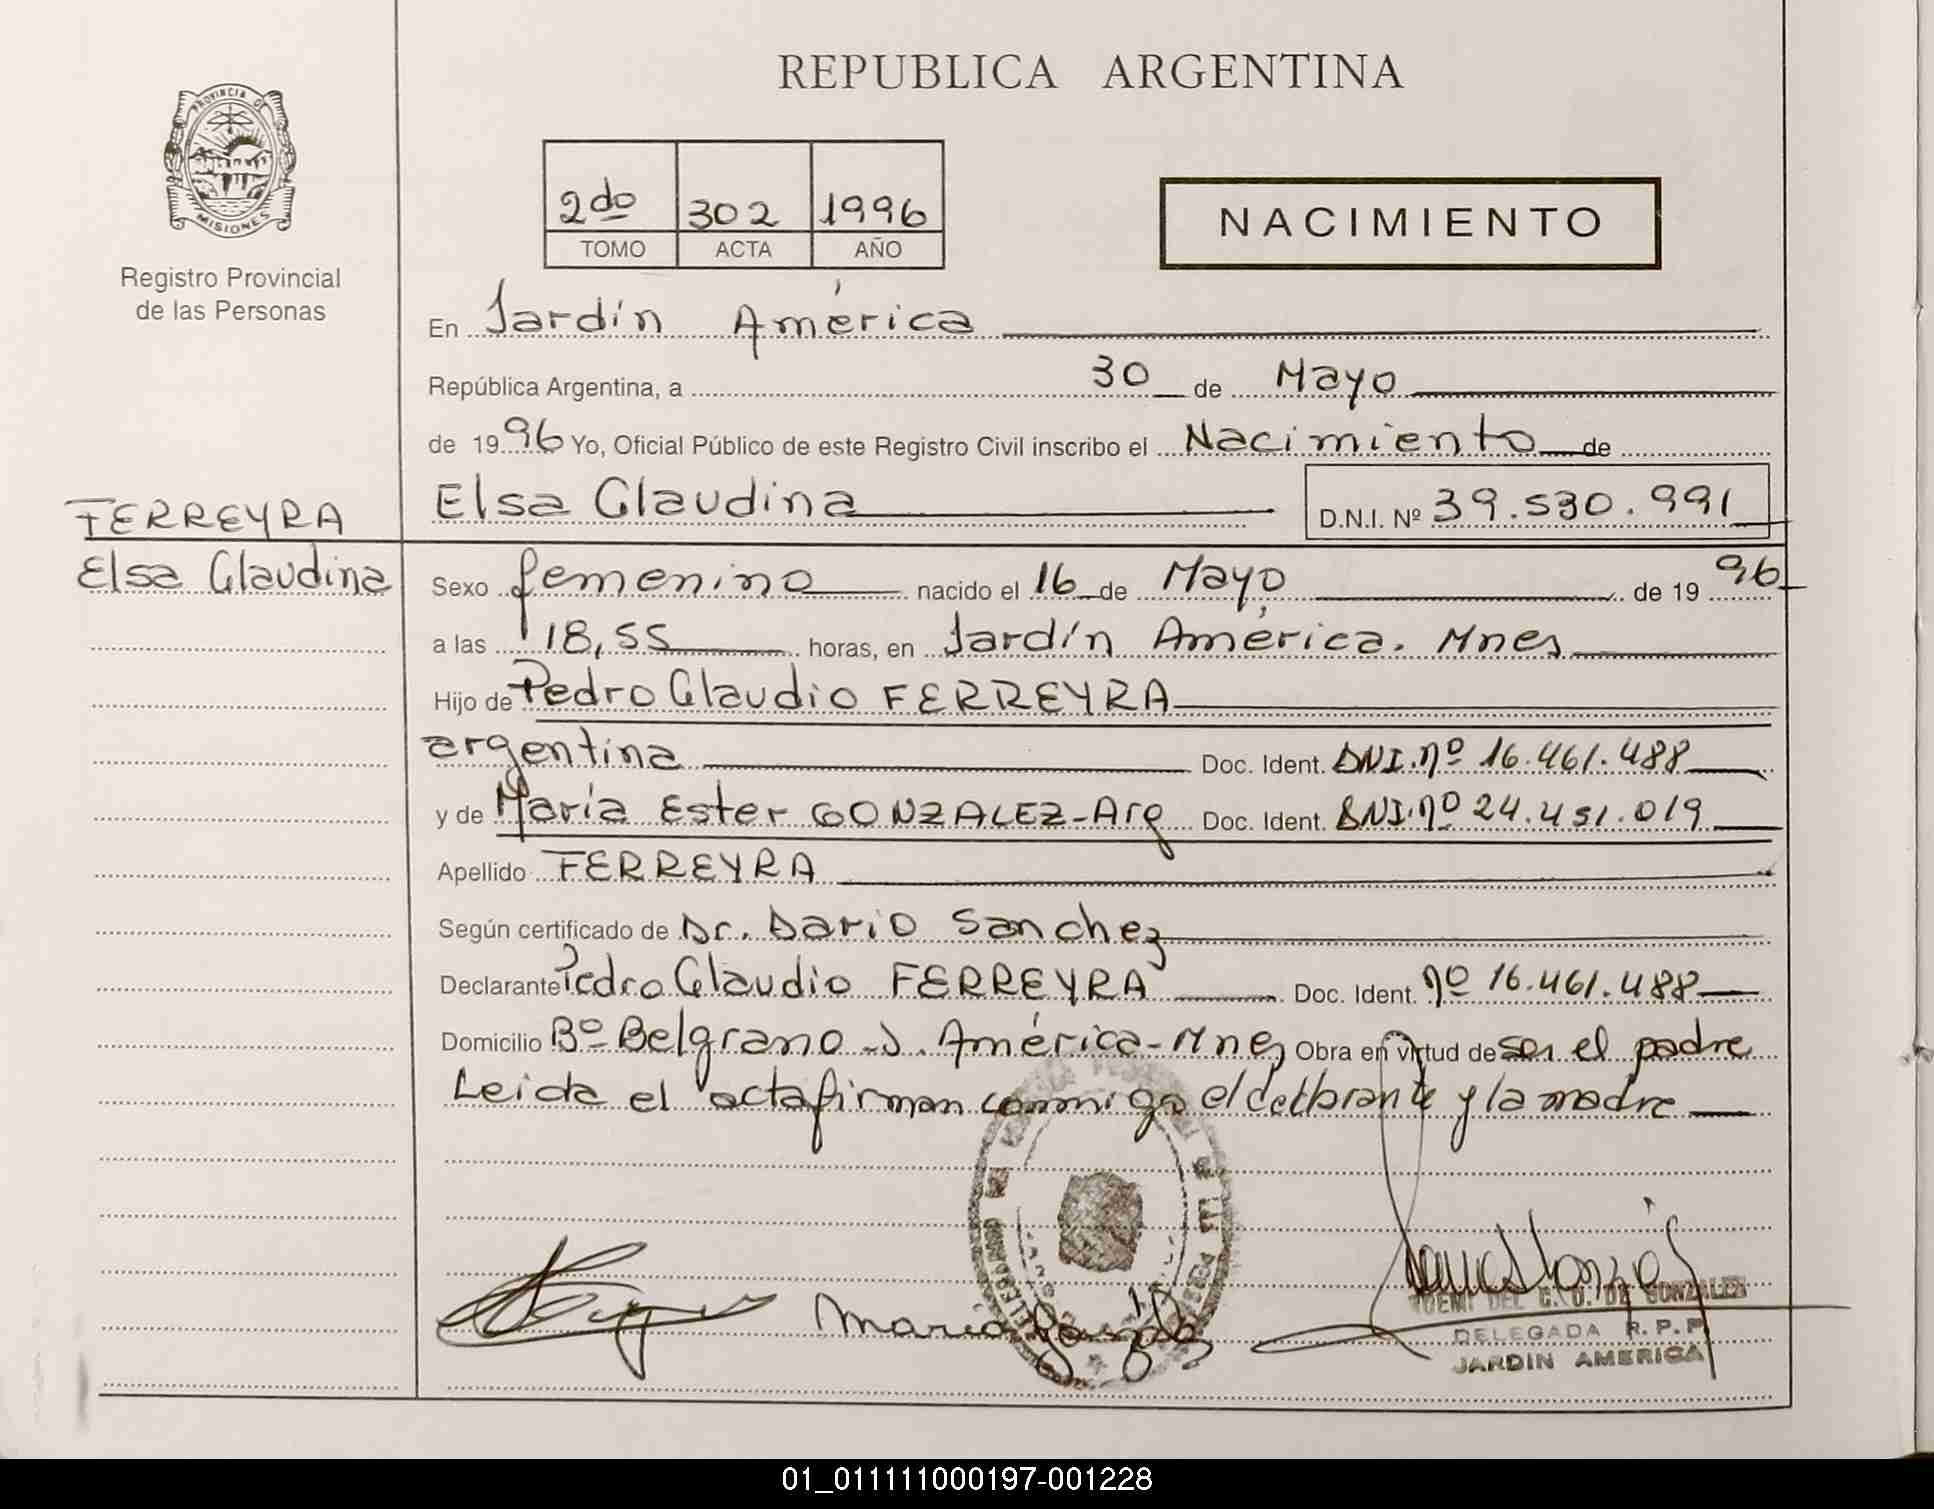 REPUBLICA ARGENTINA
PROVINCIA DE
MISIONES
Registro Provincial
de las Personas
2do 302 1996
TOMO ACTA AÑO
NACIMIENTO
En Jardín América
República Argentina, a 30 de Mayo
de 1996 Yo, Oficial Público de este Registro Civil inscribo el Nacimiento de
Elsa Claudina D.N.I. Nº 39.530.991
FERREYRA
Elsa Claudina
Sexo femenino nacido el 16 de Mayo de 1996
a las 18,55 horas, en Jardín América. Mnes
Hijo de Pedro Claudio FERREYRA
argentina Doc. Ident. DNI.nº 16.461.488
y de María Ester GONZALEZ-Arg Doc. Ident. DNI.nº 24.451.019
Apellido FERREYRA
Según certificado de Dr. Dario Sanchez
Declarante Pedro Claudio FERREYRA Doc. Ident. nº 16.461.488
Domicilio Bº Belgrano - J. América - Mnes Obra en virtud de ser el padre
Leida el acta firman conmigo el declarante y la madre
Maria
NOEMI DEL C. O. DE GONZALEZ
DELEGADA R.P.P.
JARDIN AMERICA
01_011111000197-001228